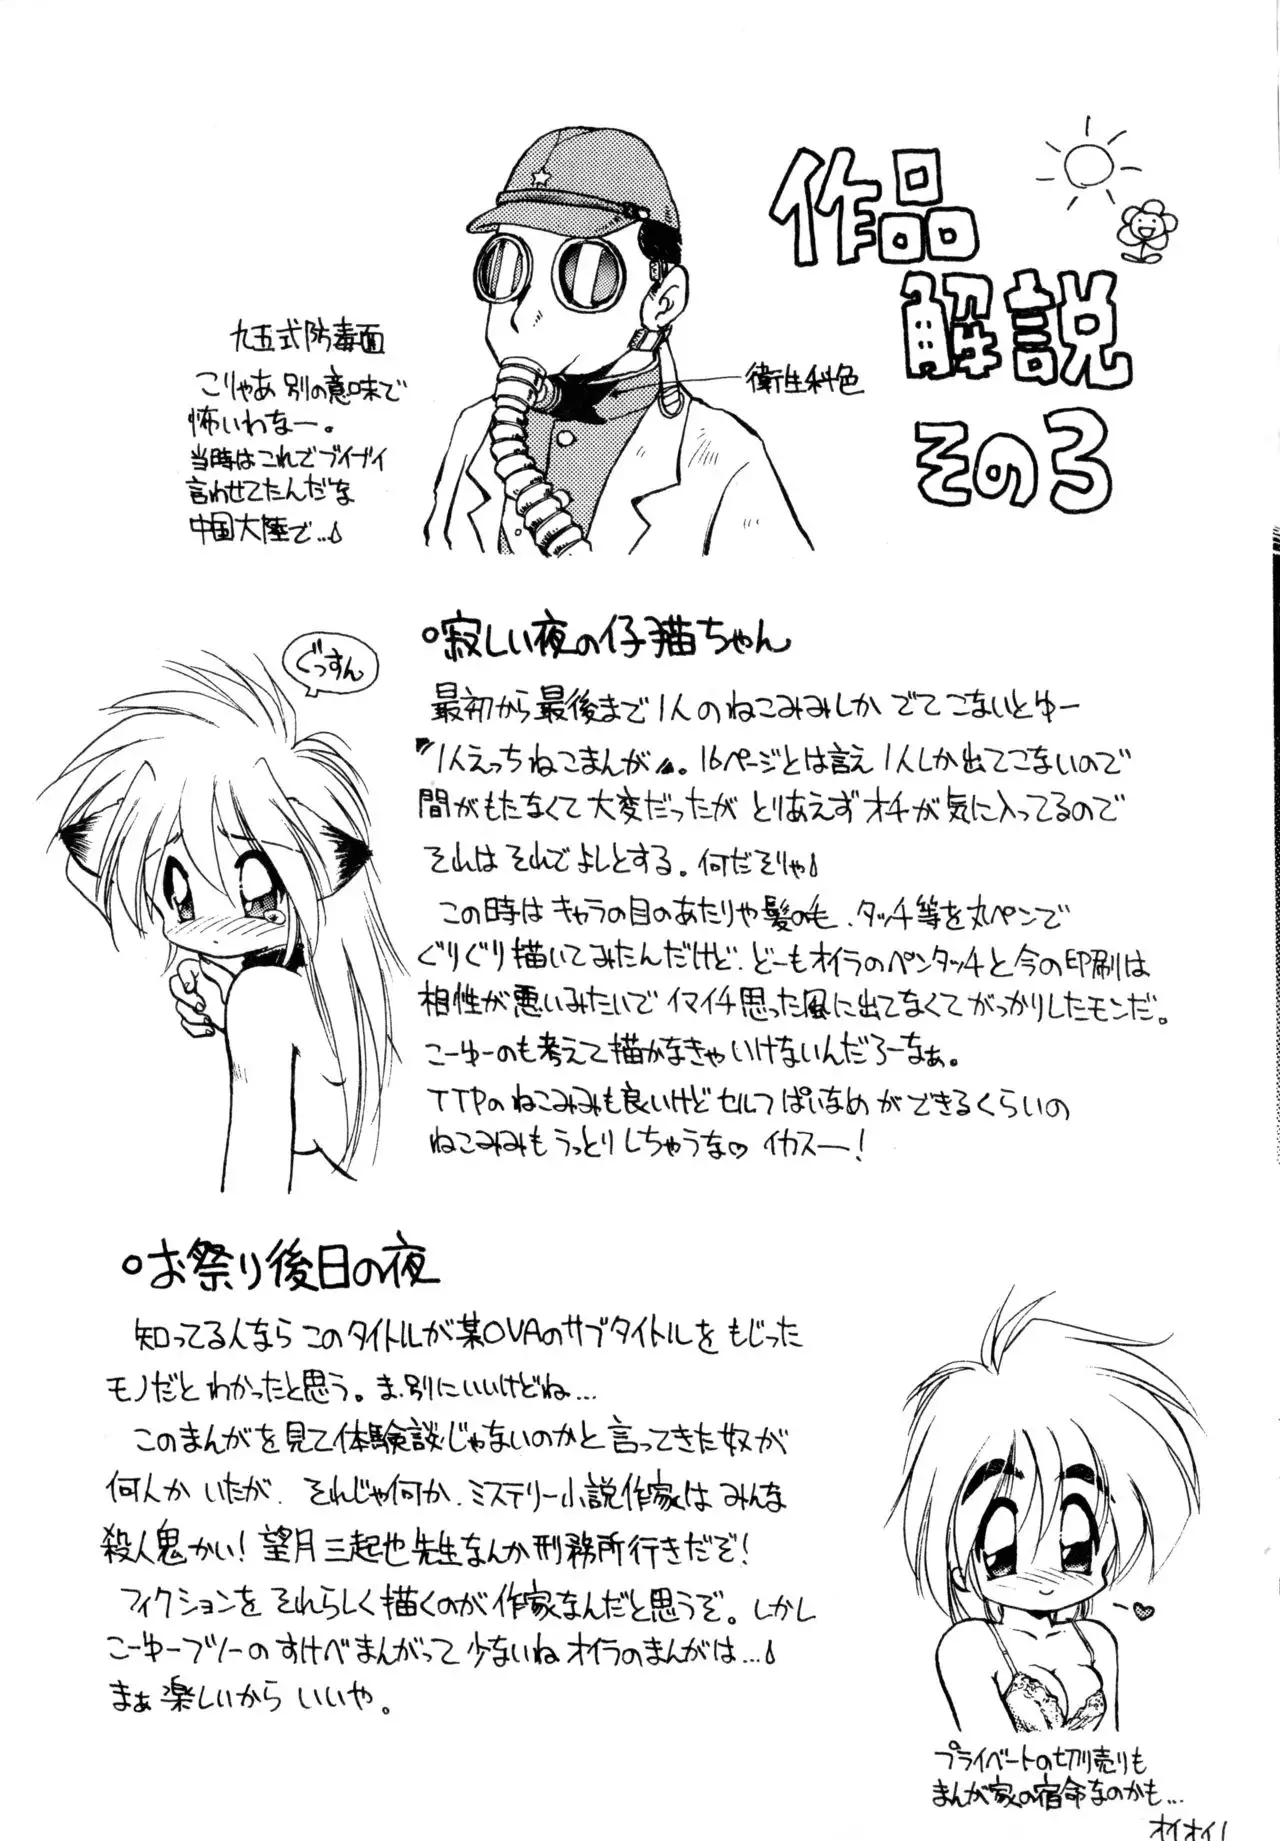 作品
解説
その3
九五式防毒面
こりゃあ別の意味で
怖いわなー。
当時はこれでブイブイ
言わせてたんだな
中国大陸で…
衛生科色
ぐっすん
寂しい夜の仔猫ちゃん
最初から最後まで1人のねこみみしか でてこないとゆー
〝1人えっちねこまんが〟。16ページとは言え1人しか出てこないので
間がもたなくて大変だったが とりあえずオチが気に入ってるので
それはそれでよしとする。何だそりゃ
この時はキャラの目のあたりや髪の毛、タッチ等を丸ペンで
ぐりぐり描いてみたんだけど、どーもオイラのペンタッチと今の印刷は
相性が悪いみたいでイマイチ思った風に出てなくてがっかりしたモンだ。
こーゆーのも考えて描かなきゃいけないんだろーなぁ。
TTPのねこみみも良いけどセルフぱいなめができるくらいの
ねこみみもうっとりしちゃうな♡ イカスー!
お祭り後日の夜
知ってる人なら このタイトルが某OVAのサブタイトルをもじった
モノだとわかったと思う。ま、別にいいけどね…
このまんがを見て体験談じゃないのかと言ってきた奴が
何人かいたが、それじゃ何か、ミステリー小説作家はみんな
殺人鬼かい!望月三起也先生なんか刑務所行きだぞ!
フィクションをそれらしく描くのが作家なんだと思うぞ。しかし
こーゆーフツーのすけべまんがって少ないねオイラのまんがは…
まぁ楽しいからいいや。
プライベートの切り売りも
まんが家の宿命なのかも…
オイオイ!